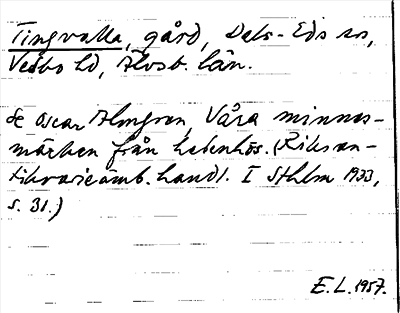 Tingvalla, gård, Dals-Eds sn,
Vedbo hd, Älvsb. län.
Se Oscar Almgren, Våra minnes-
märken från hedenhös. (Riksan-
tikvarieämb. handl. I Sthlm 1933,
s. 31.)
E. L. 1957.